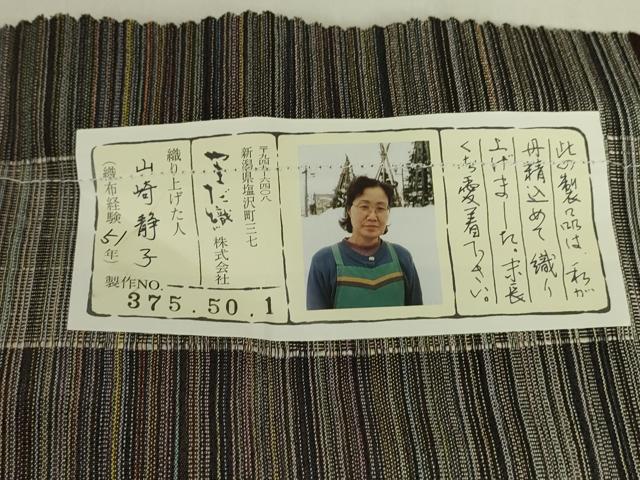 此の製品は、私が
丹精込めて織り
上げました。末長
くご愛着下さい。
〒九四九-六四〇八
新潟県塩沢町一三七
やまだ織 株式会社
織り上げた人
山崎静子
(織布経験 51年)
製作NO.
375.50.1